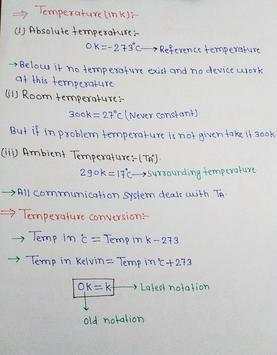 ⇒ Temperature (in k):-
(i) Absolute temperature:-
0K=-273°C → Reference temperature
→ Below it no temperature exist and no device work
at this temperature
(ii) Room temperature:-
300k=27°C (Never constant)
But if in problem temperature is not given take it 300k
(iii) Ambient Temperature:-(TA)
290k=17°C → Surrounding temperature
→ All communication system deals with TA.
⇒ Temperature conversion:-
→ Temp in °C = Temp in k-273
→ Temp in Kelvin = Temp in °C+273
0K=k → Latest notation
old notation